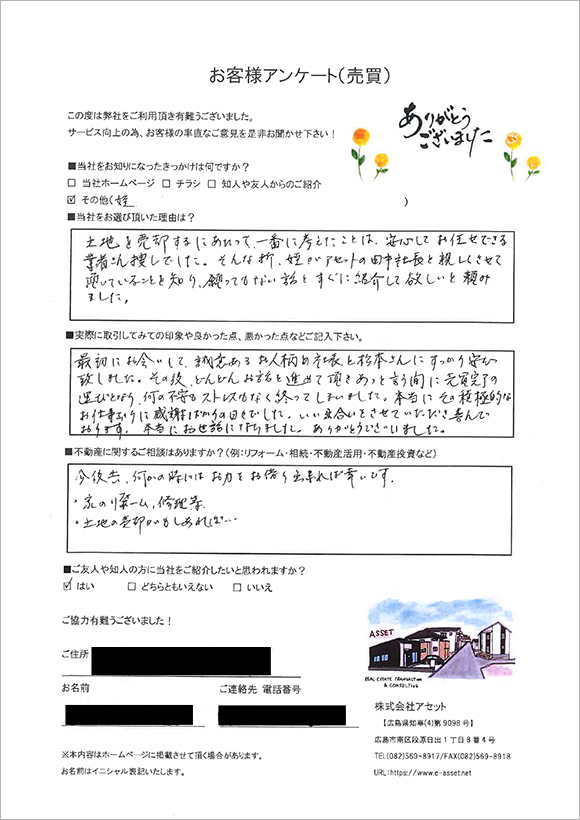 お客様アンケート(売買)
この度は弊社をご利用頂き有難うございました。
サービス向上の為、お客様の率直なご意見を是非お聞かせ下さい!
ありがとう
ございました
■当社をお知りになったきっかけは何ですか?
□ 当社ホームページ □ チラシ □ 知人や友人からのご紹介
☑ その他(姪 )
■当社をお選び頂いた理由は?
土地を売却するにあたって、一番に考えたことは、安心してお任せできる
業者さん捜しでした。そんな折、姪がアセットの田中社長と親しくさせて
頂いていることを知り、願ってもない話とすぐに紹介して欲しいと頼み
ました。
■実際に取引してみての印象や良かった点、悪かった点などご記入下さい。
最初にお会いして、誠意あるお人柄の社長と松本さんにすっかり安心
致しました。その後、どんどんお話を進めて頂きあっと言う間に売買完了の
運びとなり、何の不安もストレスもなく終ってしまいました。本当にその積極的な
お仕事ぶりに感謝ばかりの日々でした。いい出合いをさせていただき喜んで
おります。本当にお世話になりました。ありがとうございました。
■不動産に関するご相談はありますか?(例:リフォーム・相続・不動産活用・不動産投資など)
今後共、何かの時にはお力をお借り出来れば幸いです。
・家のリフォーム、修理等
・土地の売却がもしあれば…
■ご友人や知人の方に当社をご紹介したいと思われますか?
☑ はい □ どちらともいえない □ いいえ
ご協力有難うございました!
ご住所
お名前 ご連絡先 電話番号
※本内容はホームページに掲載させて頂く場合があります。
お名前はイニシャル表記いたします。
ASSET
REAL ESTATE TRANSACTION
& CONSULTING
株式会社アセット
【広島県知事(4)第9098号】
広島市南区段原日出1丁目8番4号
TEL(082)569-8917/FAX(082)569-8918
URL:https://www.e-asset.net